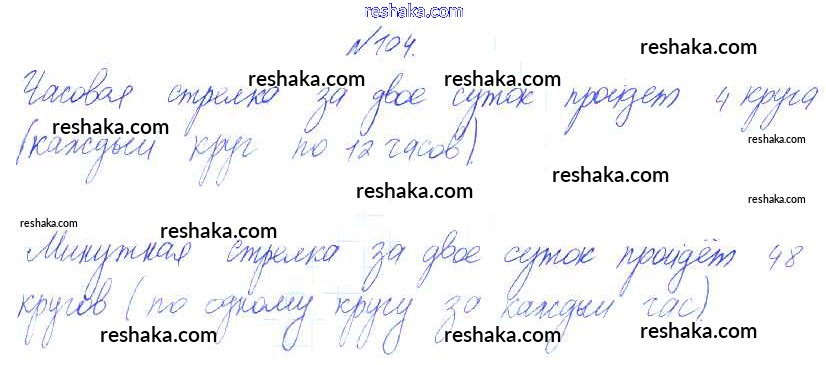 reshaka.com
№104.
reshaka.com
Часовая стрелка за двое суток пройдет 4 круга
reshaka.com reshaka.com
(каждый круг по 12 часов)
reshaka.com
reshaka.com reshaka.com
reshaka.com
reshaka.com reshaka.com
Минутная стрелка за двое суток пройдёт 48
кругов (по одному кругу за каждый час)
reshaka.com reshaka.com reshaka.com